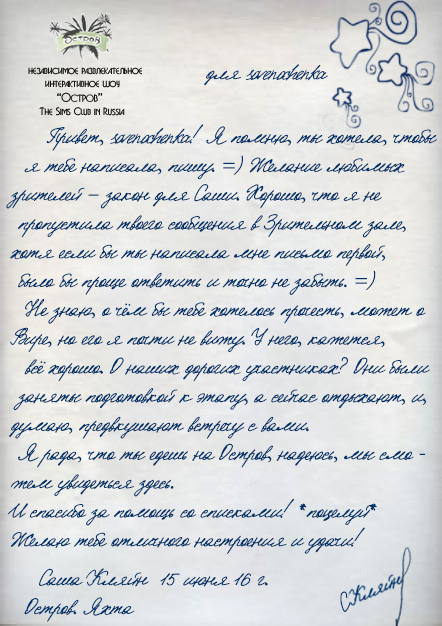 ОСТРОВ
НЕЗАВИСИМОЕ РАЗВЛЕКАТЕЛЬНОЕ
ИНТЕРАКТИВНОЕ ШОУ
"ОСТРОВ"
THE SIMS CLUB IN RUSSIA
для sovenochenka
Привет, sovenochenka! Я помню, ты хотела, чтобы
я тебе написала, пишу. =) Желание любимых
зрителей – закон для Саши. Хорошо, что я не
пропустила твоего сообщения в Зрительном зале,
хотя если бы ты написала мне письмо первой,
было бы проще ответить и точно не забыть. =)
Не знаю, о чём бы тебе хотелось прочесть, может о
Вире, но его я почти не вижу. У него, кажется,
всё хорошо. О наших дорогих участниках? Они были
заняты подготовкой к этапу, а сейчас отдыхают, и,
думаю, предвкушают встречу с вами.
Я рада, что ты едешь на Остров, надеюсь, мы смо-
жем увидеться здесь.
И спасибо за помощь со списками! *поцелуй*
Желаю тебе отличного настроения и удачи!
Саша Кляйн 15 июня 16 г.
Остров. Яхта
С.Кляйн